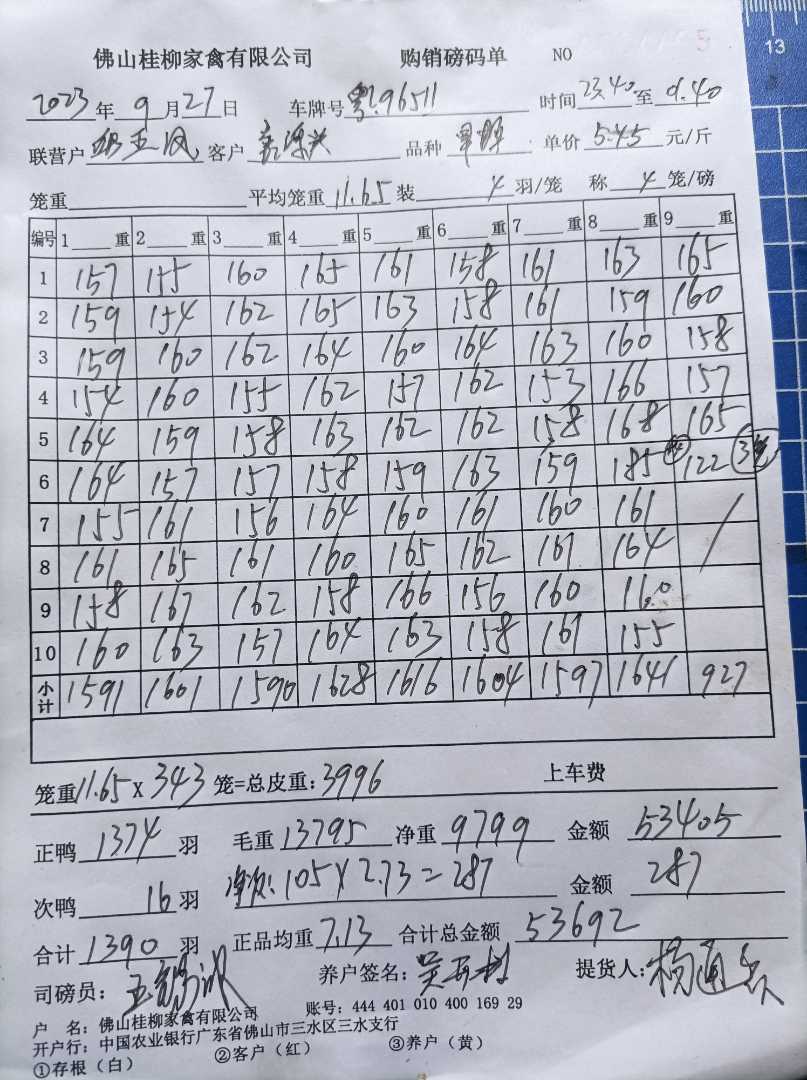 佛山桂柳家禽有限公司 购销磅码单 NO
2023年9月27日 车牌号粤96511 时间23.40至9.40
联营户 客户 品种 单价5.45元/斤
笼重 平均笼重11.65装4羽/笼 称4笼/磅
编号 1重 2重 3重 4重 5重 6重 7重 8重 9重
1 157 155 160 165 161 158 161 163 165
2 159 154 162 165 163 158 161 159 160
3 159 160 162 164 160 164 163 160 158
4 154 160 155 162 157 162 153 166 157
5 164 159 158 163 162 162 158 168 165
6 164 157 157 158 159 163 159 185 122
7 155 161 156 164 160 161 160 161 /
8 161 165 161 160 165 162 161 164 /
9 158 167 162 158 166 156 160 160
10 160 163 157 164 163 158 161 155
小计 1591 1601 1590 1628 1616 1604 1597 1641 927
笼重11.65×343笼=总皮重:3996 上车费
正鸭1374羽 毛重13795净重9799金额53405
次鸭16羽 净次:105×2.73=287 金额287
合计1390羽 正品均重7.13合计总金额53692
司磅员: 养户签名: 提货人:
户 名:佛山桂柳家禽有限公司 账号:444 401 010 400 169 29
开户行:中国农业银行广东省佛山市三水区三水支行
①存根(白) ②客户(红) ③养户(黄)
13